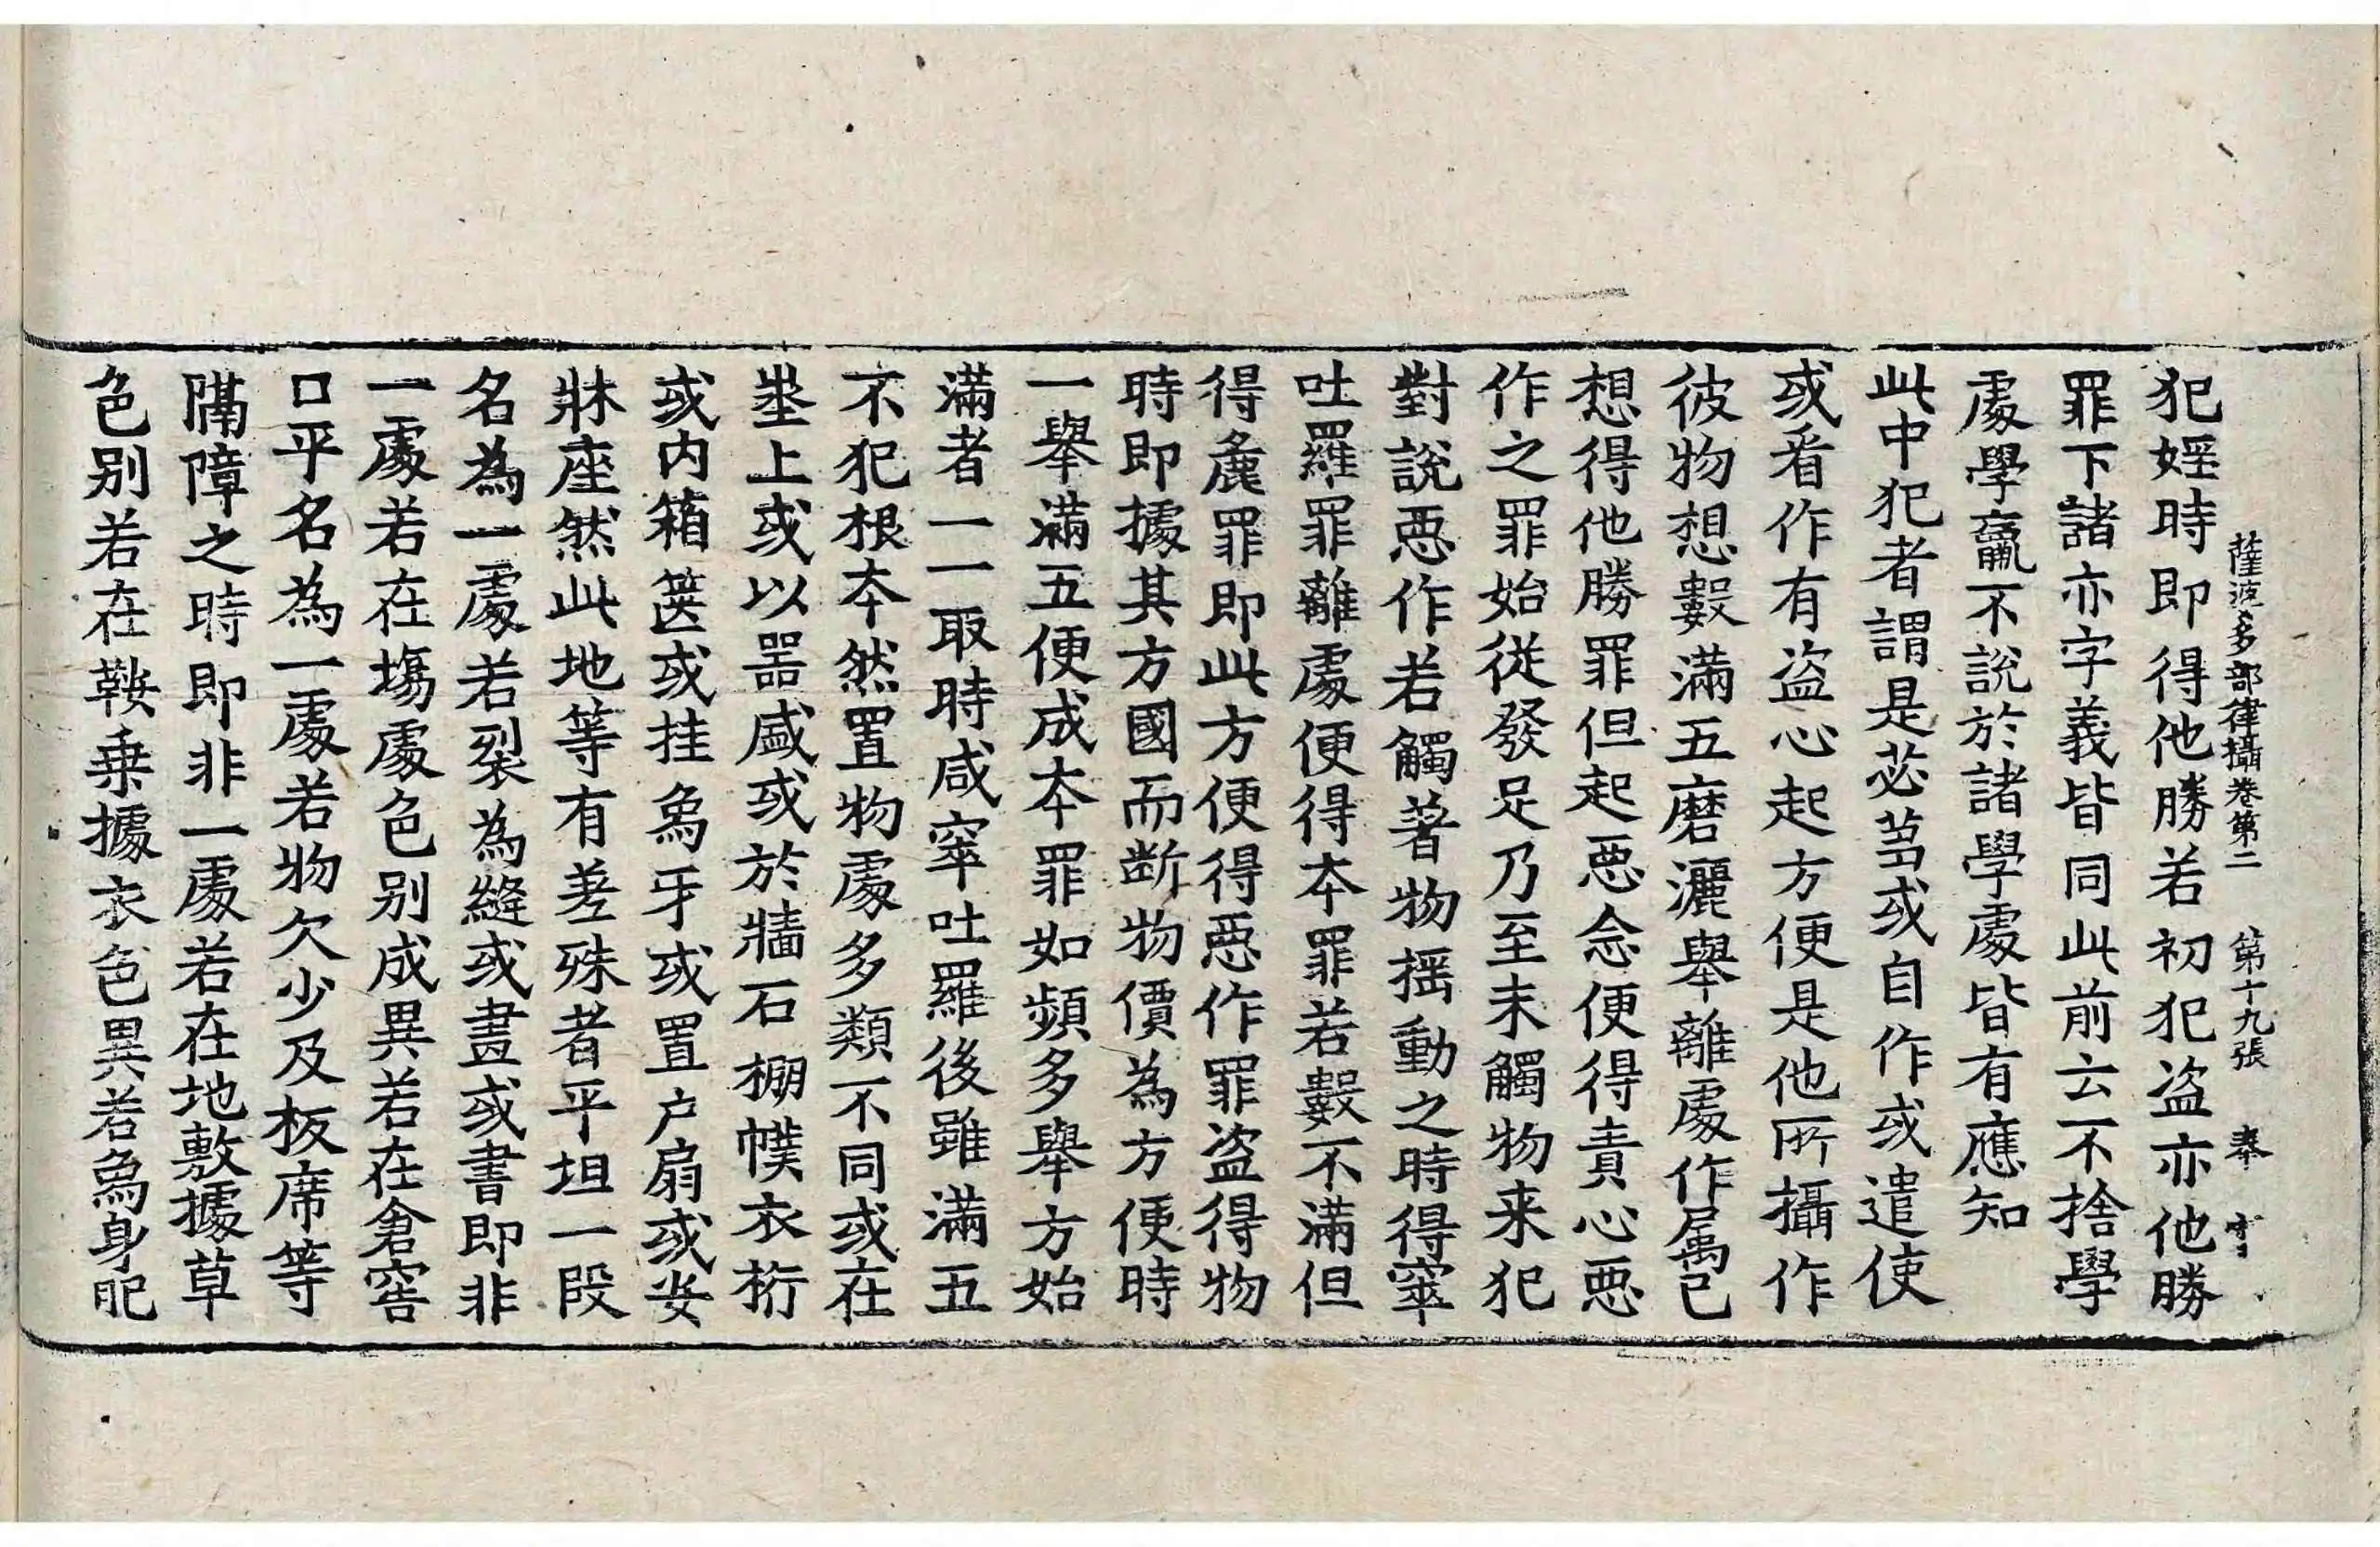 薩波多部律攝卷第二 第十九張 奉
犯婬時即得他勝若初犯盗亦他勝
罪下諸亦字義皆同此前云不捨學
處學羸不說於諸學處皆有應知
此中犯者謂是苾芻或自作或遣使
或看作有盗心起方便是他所攝作
彼物想數滿五磨灑舉離處作属己
想得他勝罪但起惡念便得責心惡
作之罪始從發足乃至未觸物来犯
對說惡作若觸著物摇動之時得窣
吐羅罪離處便得本罪若數不滿但
得麁罪即此方便得惡作罪盗得物
時即據其方國而断物價為方便時
一舉滿五便成本罪如頻多舉方始
滿者一一取時咸窣吐羅後雖滿五
不犯根本然置物處多類不同或在
地上或以器盛或於牆石棚幞衣桁
或内箱篋或挂象牙或置户扇或安
牀座然此地等有差殊者平坦一段
名為一處若裂為縫或畫或書即非
一處若在塲處色别成異若在倉窖
口平名為一處若物欠少及板席等
隔障之時即非一處若在地敷據草
色别若在鞍乗據衣色異若象身肥